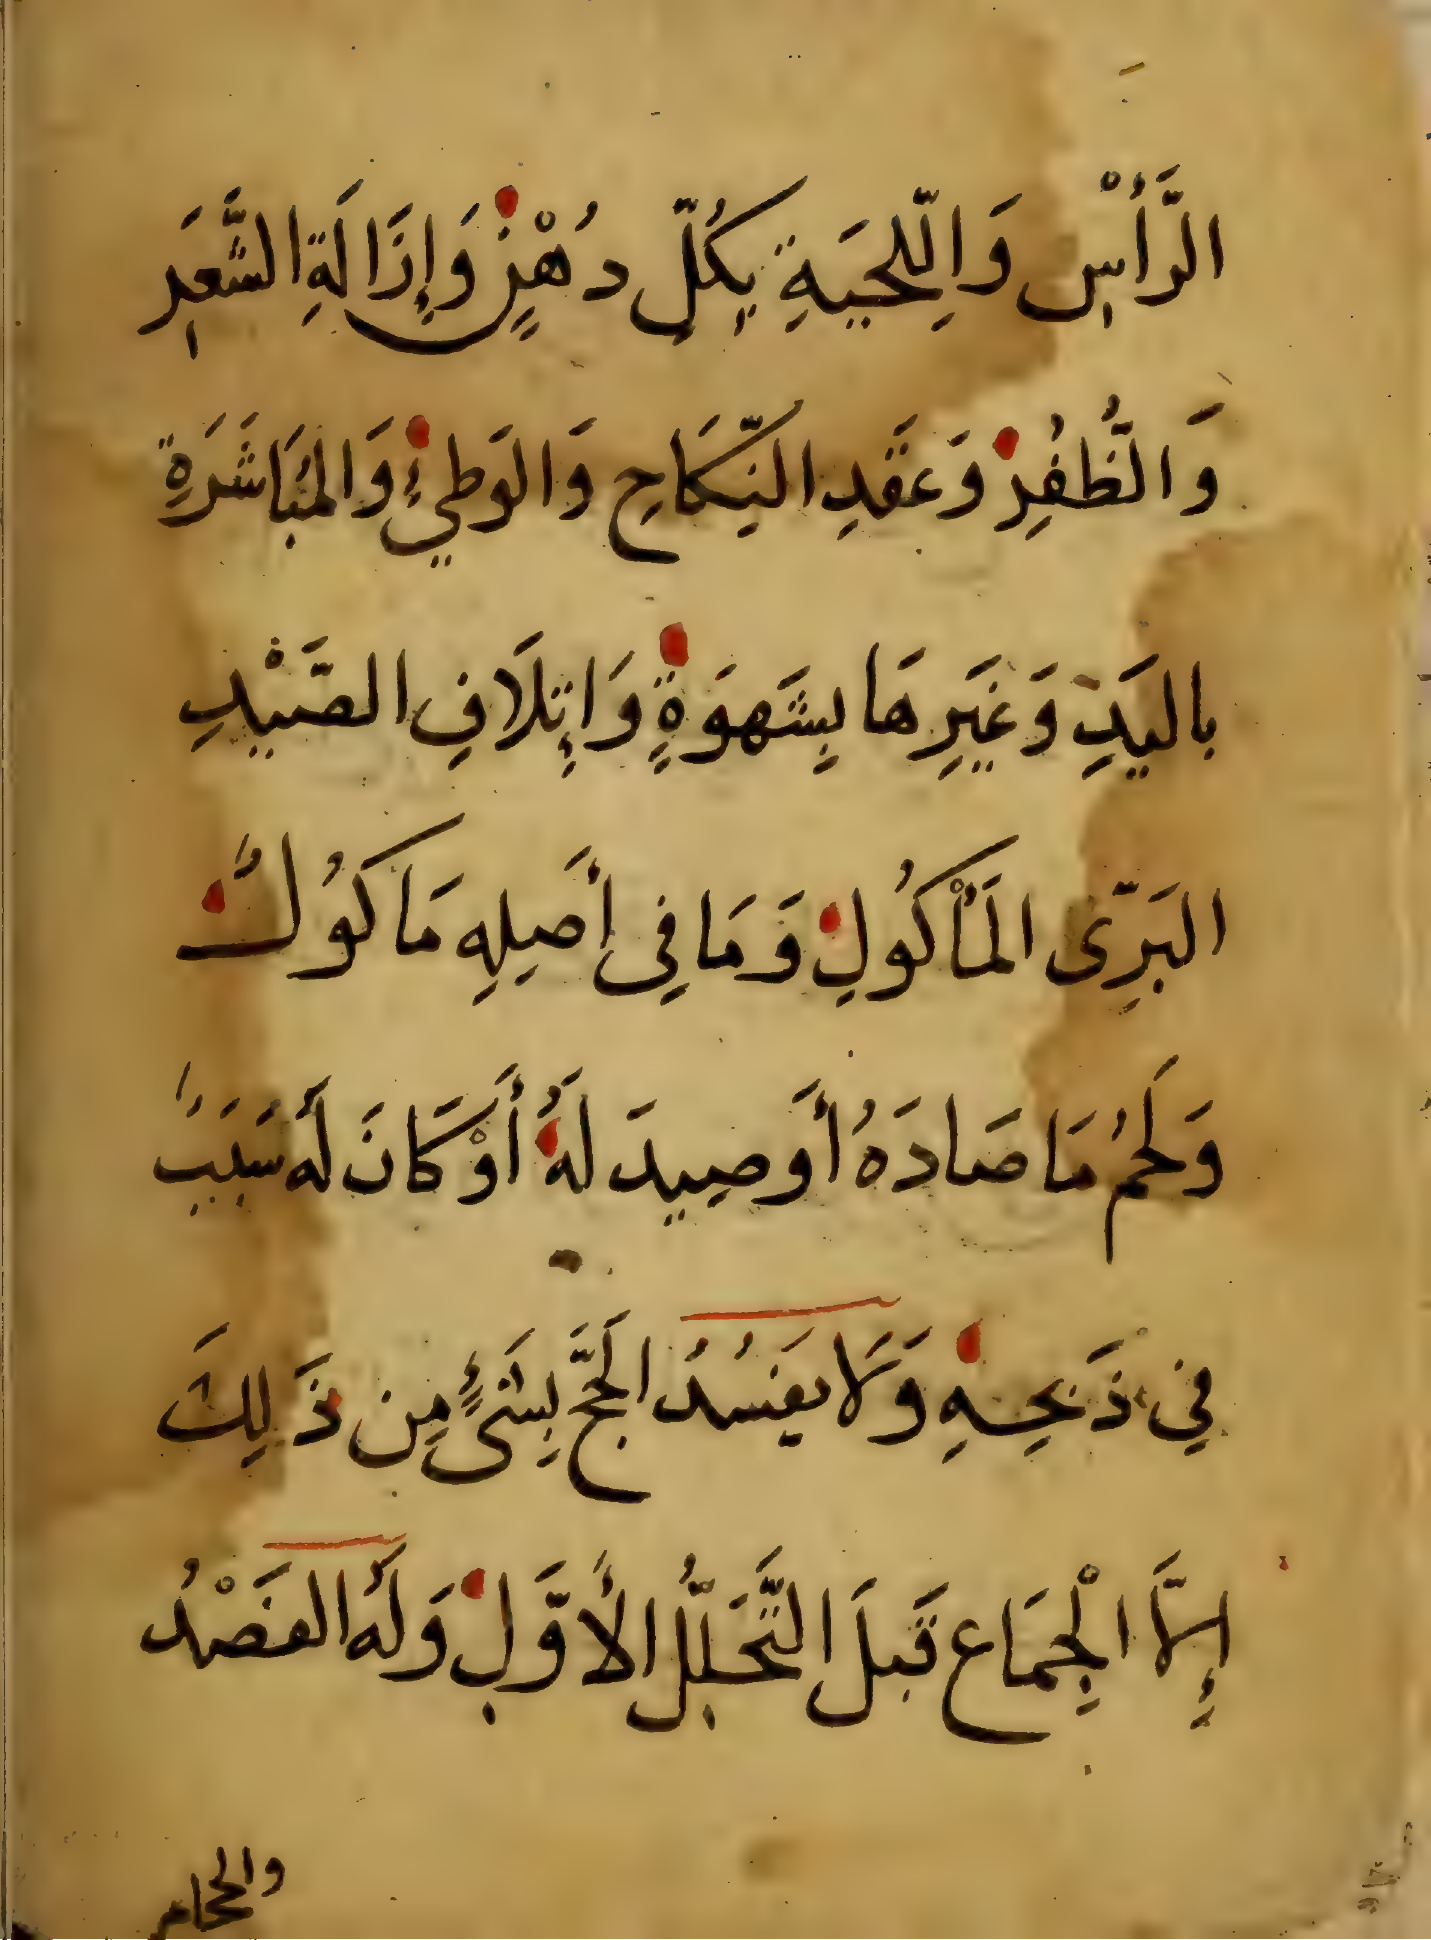 الرَّأْسِ وَالِّلحيَةِ بِكُلِّ دُهْنٍ وَإِزَالَةِ الشَّعَرِ
وَالظُّفُرِ وَعَقَدِ النِّكَاحِ وَالوَطيِءِ وَالمُبَاشَرَةِ
بالَيدِ وَغَيَرِهَا بِشَهوَةٍ وَاِتلَافِ الصَّيْدِ
البَرِّى المَأْكُولِ وَمَا فِى أَصيلِهِ مَاكُولٌ
وَلَحمُ مَا صَادَهُ أَو صِيدَ لَهُ أَوْ كَانَ لَهُ سَبَبٌ
فِي ذَبحِهِ وَلَا يفَسُدُ الحَجَّ بِشَىءٍ مِن ذَلِكَ
إِلاَّ الْجِمَاع قَبلَ التَّحَلُّلِ الأَوَّلِ وَلَهُ الفَصْدُ
والحجامه